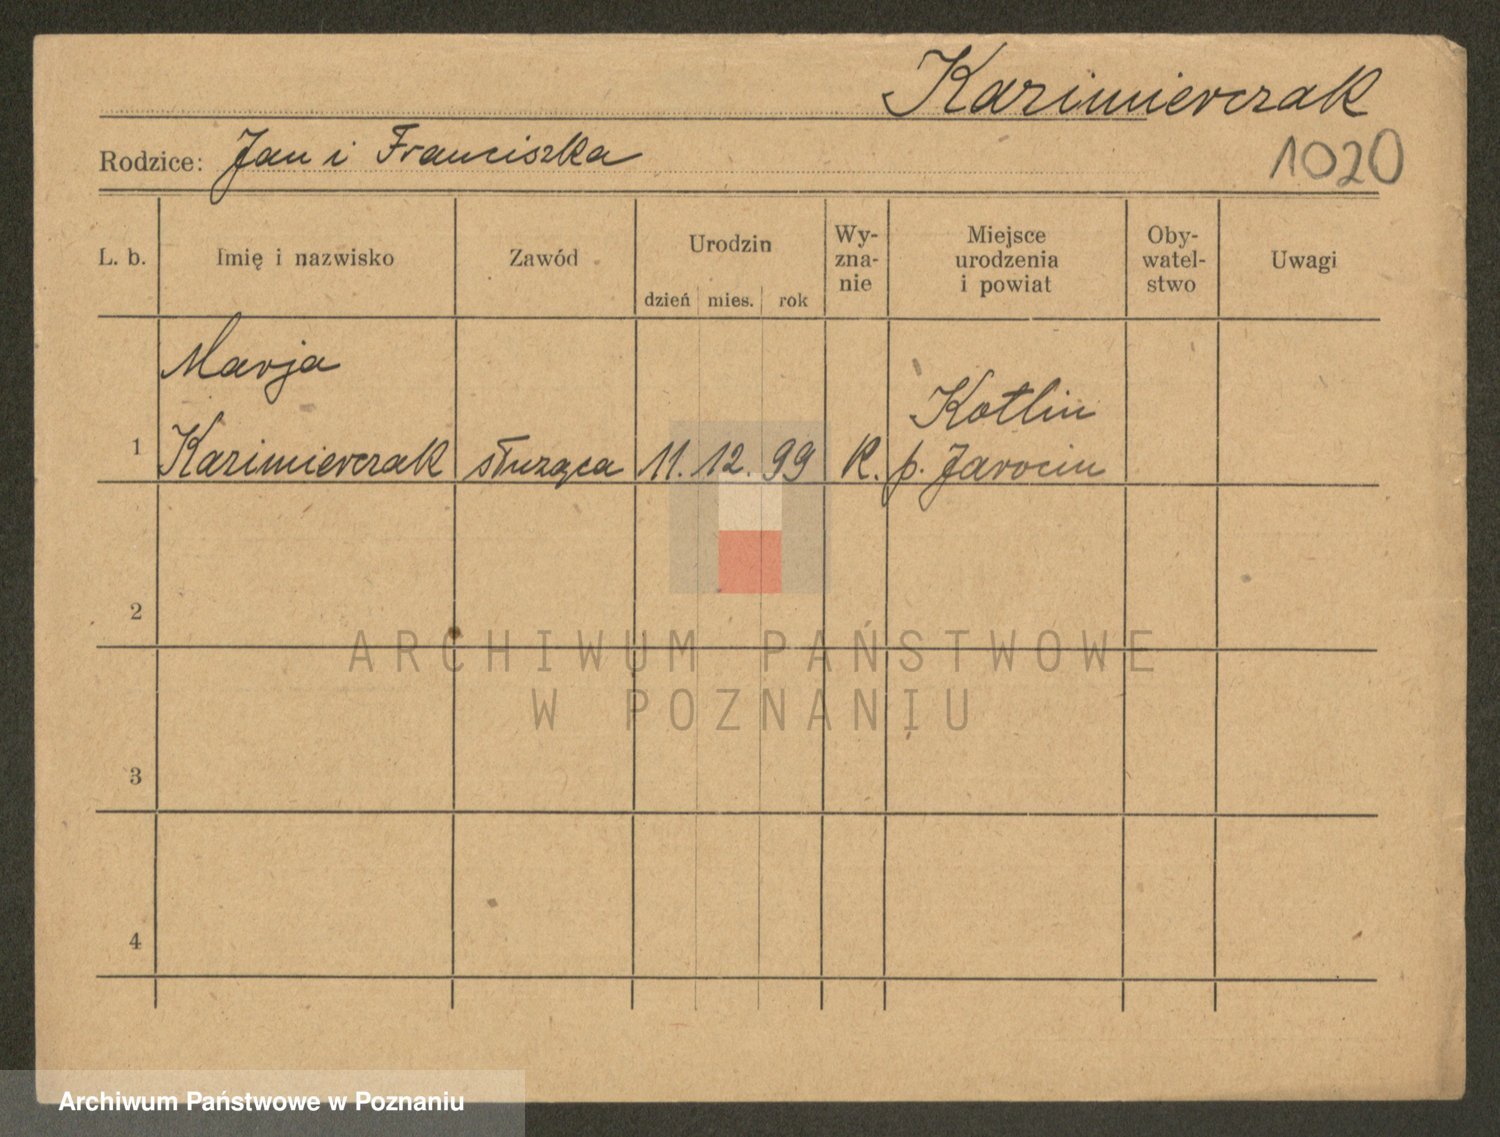 Kazimierczak
Rodzice: Jan i Franciszka
1020
L. b. Imię i nazwisko Zawód Urodzin dzień mies. rok Wy-zna-nie Miejsce urodzenia i powiat Oby-watel-stwo Uwagi
Marja
Kotlin
1 Kazimierczak służąca 11. 12. 99 K. p. Jarocin
2
ARCHIWUM PAŃSTWOWE
W POZNANIU
3
4
Archiwum Państwowe w Poznaniu